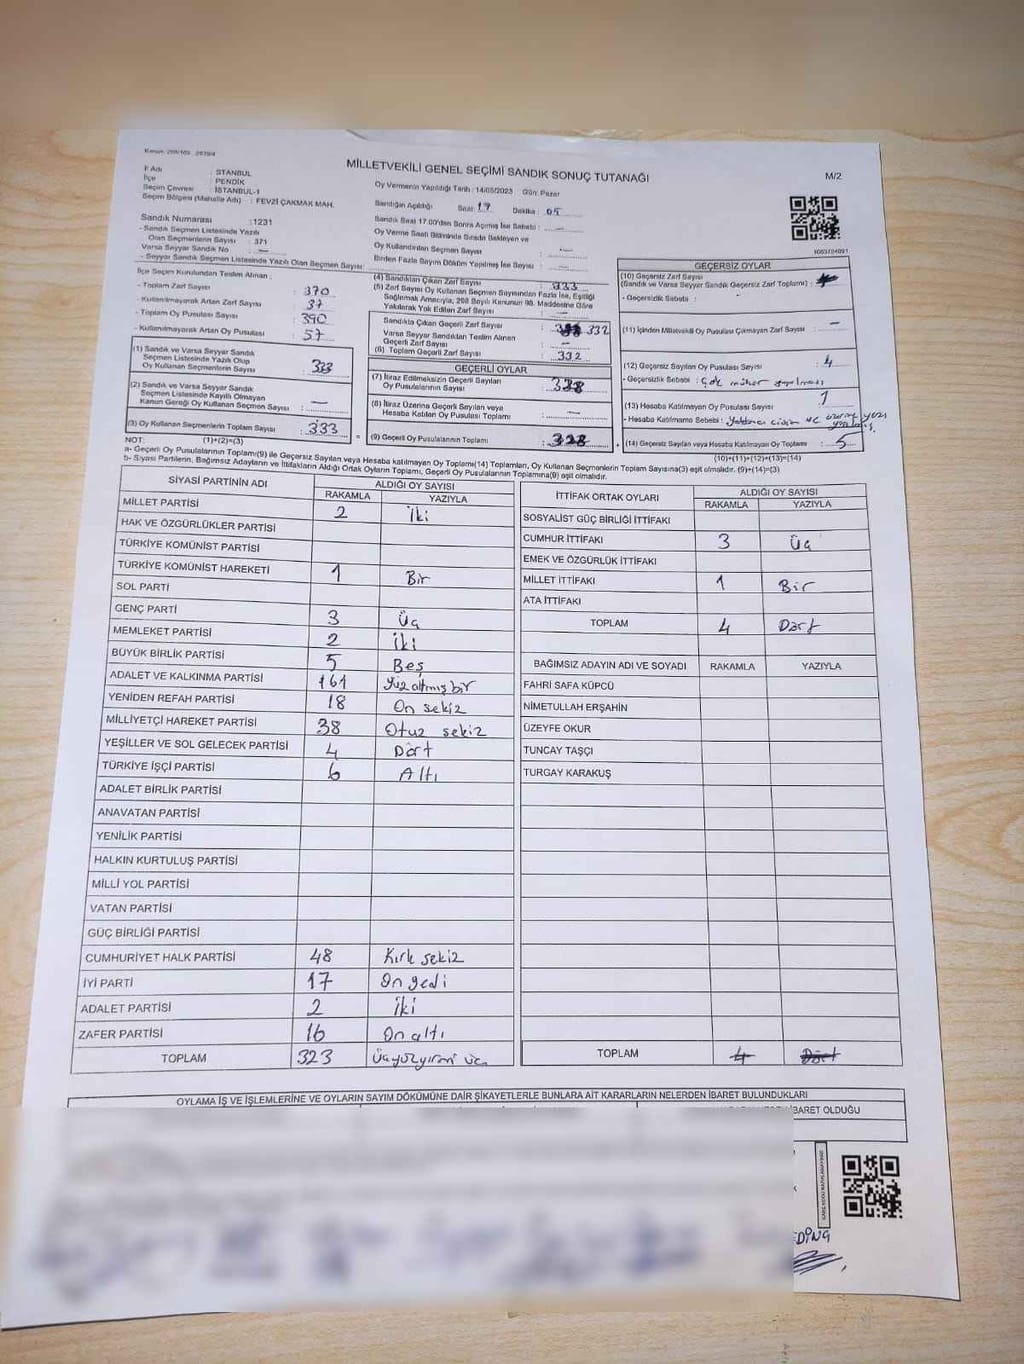 MİLLETVEKİLİ GENEL SEÇİMİ SANDIK SONUÇ TUTANAĞI
M/2
İl Adı : İSTANBUL
İlçe : PENDİK
Seçim Çevresi : İSTANBUL-1
Seçim Bölgesi (Mahalle Adı) : FEVZİ ÇAKMAK MAH.
Oy Vermenin Yapıldığı Tarih : 14/05/2023 Gün: Pazar
Sandığın Açıldığı Saat : 17 Dakika : 05
Sandık Numarası : 1231
- Sandık Seçmen Listesinde Yazılı
Olan Seçmenlerin Sayısı : 371
Varsa Seyyar Sandık No : —
- Seyyar Sandık Seçmen Listesinde Yazılı Olan Seçmen Sayısı :
Sandık Saat 17.00'dan Sonra Açılmış İse Sebebi : —
Oy Verme Saati Bitiminde Sırada Bekleyen ve
Oy Kullandırılan Seçmen Sayısı : —
Birden Fazla Sayım Döküm Yapılmış İse Sayısı : —
İlçe Seçim Kurulundan Teslim Alınan :
- Toplam Zarf Sayısı : 370
- Kullanılmayarak Artan Zarf Sayısı : 37
- Toplam Oy Pusulası Sayısı : 390
- Kullanılmayarak Artan Oy Pusulası : 57
(1) Sandık ve Varsa Seyyar Sandık
Seçmen Listesinde Yazılı Olup
Oy Kullanan Seçmenlerin Sayısı : 333
(2) Sandık ve Varsa Seyyar Sandık
Seçmen Listesinde Kayıtlı Olmayan
Kanun Gereği Oy Kullanan Seçmen Sayısı : —
(3) Oy Kullanan Seçmenlerin Toplam Sayısı : 333
(1)+(2)=(3)
(4) Sandıktan Çıkan Zarf Sayısı : 333
(5) Zarf Sayısı Oy Kullanan Seçmen Sayısından Fazla İse, Eşitliği
Sağlamak Amacıyla, 298 Sayılı Kanunun 98. Maddesine Göre
Yakılarak Yok Edilen Zarf Sayısı : —
Sandıkta Çıkan Geçerli Zarf Sayısı : 332
Varsa Seyyar Sandıktan Teslim Alınan
Geçerli Zarf Sayısı : —
(6) Toplam Geçerli Zarf Sayısı : 332
GEÇERLİ OYLAR
(7) İtiraz Edilmeksizin Geçerli Sayılan
Oy Pusulalarının Sayısı : 328
(8) İtiraz Üzerine Geçerli Sayılan veya
Hesaba Katılan Oy Pusulası Toplamı : —
(9) Geçerli Oy Pusulalarının Toplamı : 328
GEÇERSİZ OYLAR
(10) Geçersiz Zarf Sayısı
(Sandık ve Varsa Seyyar Sandık Geçersiz Zarf Toplamı) :
- Geçersizlik Sebebi :
(11) İçinden Milletvekili Oy Pusulası Çıkmayan Zarf Sayısı : —
(12) Geçersiz Sayılan Oy Pusulası Sayısı : 4
- Geçersizlik Sebebi : Çok mühür
(13) Hesaba Katılmayan Oy Pusulası Sayısı : 1
- Hesaba Katılmama Sebebi :
(14) Geçersiz Sayılan veya Hesaba Katılmayan Oy Toplamı : 5
(10)+(11)+(12)+(13)=(14)
NOT:
a- Geçerli Oy Pusulalarının Toplamı(9) ile Geçersiz Sayılan veya Hesaba katılmayan Oy Toplamı(14) Toplamları, Oy Kullanan Seçmenlerin Toplam Sayısına(3) eşit olmalıdır. (9)+(14)=(3)
b- Siyasi Partilerin, Bağımsız Adayların ve İttifakların Aldığı Ortak Oyların Toplamı, Geçerli Oy Pusulalarının Toplamına(9) eşit olmalıdır.
SİYASİ PARTİNİN ADI ALDIĞI OY SAYISI
RAKAMLA YAZIYLA
MİLLET PARTİSİ 2 İki
HAK VE ÖZGÜRLÜKLER PARTİSİ
TÜRKİYE KOMÜNİST PARTİSİ
TÜRKİYE KOMÜNİST HAREKETİ 1 Bir
SOL PARTİ
GENÇ PARTİ 3 Üç
MEMLEKET PARTİSİ 2 İki
BÜYÜK BİRLİK PARTİSİ 5 Beş
ADALET VE KALKINMA PARTİSİ 161 Yüz altmış bir
YENİDEN REFAH PARTİSİ 18 On sekiz
MİLLİYETÇİ HAREKET PARTİSİ 38 Otuz sekiz
YEŞİLLER VE SOL GELECEK PARTİSİ 4 Dört
TÜRKİYE İŞÇİ PARTİSİ 6 Altı
ADALET BİRLİK PARTİSİ
ANAVATAN PARTİSİ
YENİLİK PARTİSİ
HALKIN KURTULUŞ PARTİSİ
MİLLİ YOL PARTİSİ
VATAN PARTİSİ
GÜÇ BİRLİĞİ PARTİSİ
CUMHURİYET HALK PARTİSİ 48 Kırk sekiz
İYİ PARTİ 17 On yedi
ADALET PARTİSİ 2 İki
ZAFER PARTİSİ 16 On altı
TOPLAM 323 Üçyüzyirmi üç
İTTİFAK ORTAK OYLARI ALDIĞI OY SAYISI
RAKAMLA YAZIYLA
SOSYALİST GÜÇ BİRLİĞİ İTTİFAKI
CUMHUR İTTİFAKI 3 Üç
EMEK VE ÖZGÜRLÜK İTTİFAKI
MİLLET İTTİFAKI 1 Bir
ATA İTTİFAKI
TOPLAM 4 Dört
BAĞIMSIZ ADAYIN ADI VE SOYADI RAKAMLA YAZIYLA
FAHRİ SAFA KÜPCÜ
NİMETULLAH ERŞAHİN
ÜZEYFE OKUR
TUNCAY TAŞÇI
TURGAY KARAKUŞ
TOPLAM 4 Dört
OYLAMA İŞ VE İŞLEMLERİNE VE OYLARIN SAYIM DÖKÜMÜNE DAİR ŞİKAYETLERLE BUNLARA AİT KARARLARIN NELERDEN İBARET BULUNDUKLARI
İBARET OLDUĞU